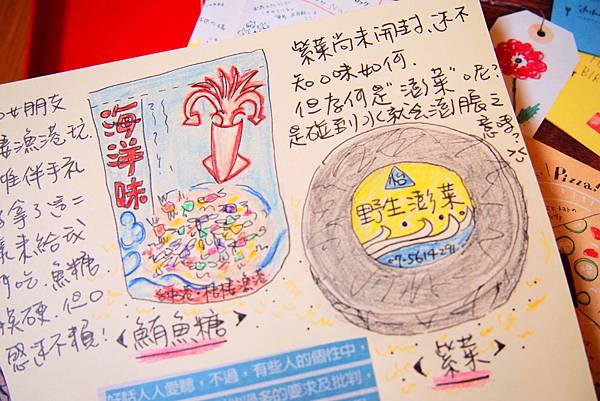 紫菜尚未開封、還不
知口味如何.
但為何是"澎菜"呢?
是碰到水就會澎脹之
意嗎?
女朋友
漁港玩.
伴手礼
拿了這二
來給我
吃.魚糖
硬.但口
感還不賴!
海洋味
<鮪魚糖>
怡
野生澎菜
07-5614291
<紫菜>
Pizza!
好話人人愛聽，不過，有些人的個性中，
多的要求及批判，